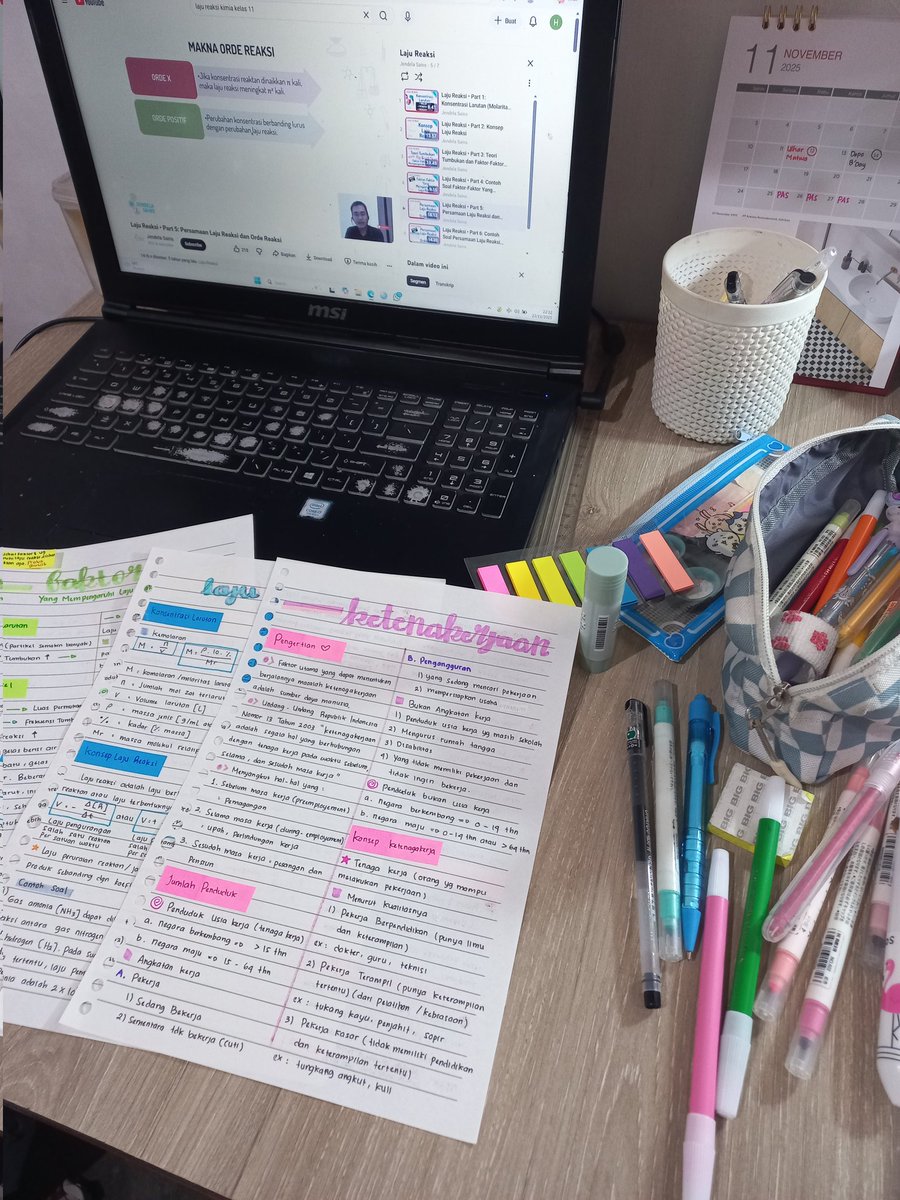 YouTube
laju reaksi kimia kelas 11
Buat
H
MAKNA ORDE REAKSI
ORDE X
•Jika konsentrasi reaktan dinaikkan n kali,
maka laju reaksi meningkat nˣ kali.
ORDE POSITIF
•Perubahan konsentrasi berbanding lurus
dengan perubahan laju reaksi.
Laju Reaksi • Part 5: Persamaan Laju Reaksi dan Orde Reaksi
Jendela Sains
Subscribe
Bagikan
Download
Terima kasih
Laju Reaksi
Jendela Sains - 5 / 7
Laju Reaksi • Part 1:
Konsentrasi Larutan (Molarita...
Jendela Sains
Laju Reaksi • Part 2: Konsep
Laju Reaksi
Jendela Sains
Laju Reaksi • Part 3: Teori
Tumbukan dan Faktor-Faktor...
Jendela Sains
Laju Reaksi • Part 4: Contoh
Soal Faktor-Faktor Yang...
Jendela Sains
Laju Reaksi • Part 5:
Persamaan Laju Reaksi dan...
Jendela Sains
Laju Reaksi • Part 6: Contoh
Soal Persamaan Laju Reaksi...
Jendela Sains
Dalam video ini
Segmen
Transkrip
msi
11 NOVEMBER
2025
Ulhar
Matwa
Dapo
B'Day
PAS PAS PAS
Faktor
Yang Mempengaruhi Laju
(Partikel semakin banyak)
Tumbukan ↑
Luas Permukaan
Frekuensi Tumbu
laju
Konsentrasi Larutan
Kemolaran
M = n/V
M = ρ . 10 . %
Mr
M : kemolaran /molaritas larutan
n : Jumlah mol zat terlarut
V : Volume larutan [L]
ρ : massa jenis [g/mL
% : kadar [% massa]
Mr : massa molekul relatif
Konsep Laju Reaksi
Laju reaksi adalah laju ber
reaktan atau laju terbentuknya
V = - Δ[R]
Δt
atau
Laju pengurangan
salah satu reaksi
Per satuan waktu
Laju penguraian reaktan /
Produk sebanding dgn koef
Contoh Soal
Gas amonia (NH₃) dapat di
reaksi antara gas nitrogen
hidrogen (H₂). Pada su
tertentu, laju pem
adalah 2 x 10
ketenakerjaan
Pengertian ♡
Faktor utama yang dapat menentukan
berjalannya masalah ketenagakerjaan
adalah sumber daya manusia
Undang-Undang Republik Indonesia
Nomor 13 Tahun 2003 "ketenagakerjaan
adalah segala hal yang berhubungan
dengan tenaga kerja pada waktu sebelum,
Selama, dan sesudah masa kerja"
Menyangkut hal-hal yang:
1. Sebelum masa kerja (preemployement)
: Pemagangan
2. Selama masa kerja (during-employment)
: upah, perlindungan kerja
3. Sesudah masa kerja : pesangon dan
Pensiun
Jumlah Penduduk
Penduduk usia kerja (tenaga kerja)
a. negara berkembang => > 15 thn
b. negara maju => 15 - 64 thn
Angkatan kerja
A. Pekerja
1) Sedang Bekerja
2) Sementara tdk bekerja (cuti)
B. Pengangguran
1) yang sedang mencari pekerjaan
2) mempersiapkan usaha
Bukan Angkatan kerja
1) Penduduk usia kerja yg masih sekolah
2) Mengurus rumah tangga
3) Disabilitas
4) Yang tidak memiliki pekerjaan dan
tidak ingin bekerja.
Penduduk bukan usia kerja
a. negara berkembang => 0 - 14 thn
b. negara maju => 0-14 thn atau > 64 thn
Konsep ketenagakerja
Tenaga kerja (orang yg mampu
melakukan pekerjaan)
Menurut kualitasnya
1) Pekerja Berpendidikan (punya ilmu
dan keterampilan)
ex : dokter, guru, teknisi
2) Pekerja Terampil (punya keterampilan
tertentu) (dari pelatihan /kebiasaan)
ex : tukang kayu, penjahit, sopir
3) Pekerja Kasar (tidak memiliki pendidikan
dan keterampilan tertentu)
ex : tungkang angkut, kuli
BIG BIG